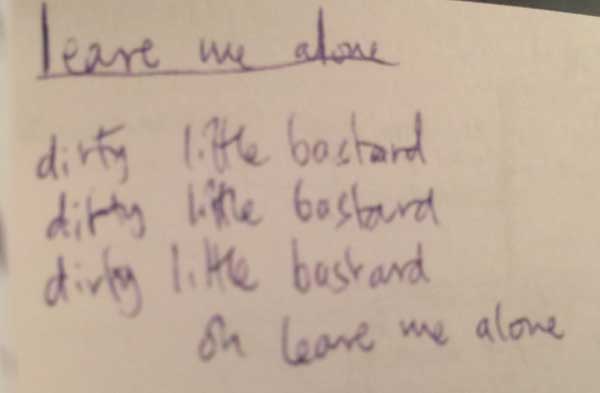 leave me alone
dirty little bastard
dirty little bastard
dirty little bastard
oh leave me alone